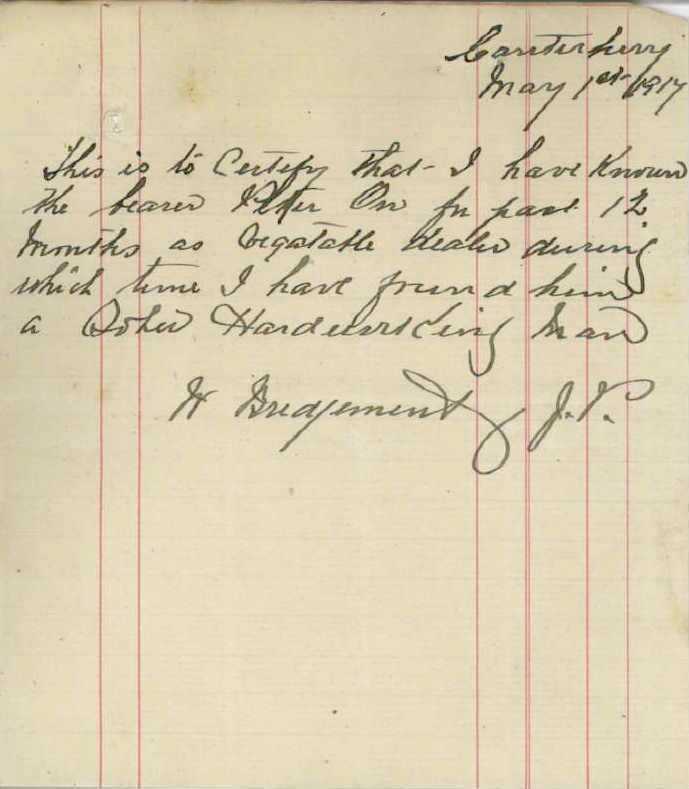 Canterbury
May 1st 1917
This is to Certify that I have Known
the bearer Peter On for past 12
Months as Vegatable dealer during
which time I have found him
a Sober Hardworking Man
J.P.